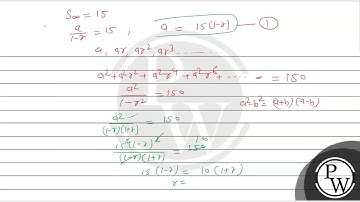 S∞ = 15
a/(1-r) = 15, a = 15(1-r) ①
a, ar, ar², ar³ ......
a² + a²r² + a²r⁴ + a²r⁶ + ...... = 150
a²/(1-r²) = 150
a²-b² = (a+b)(a-b)
a²/((1-r)(1+r)) = 150
15²(1-r)²/((1-r)(1+r)) = 150 10
15(1-r) = 10(1+r)
r =
P
W